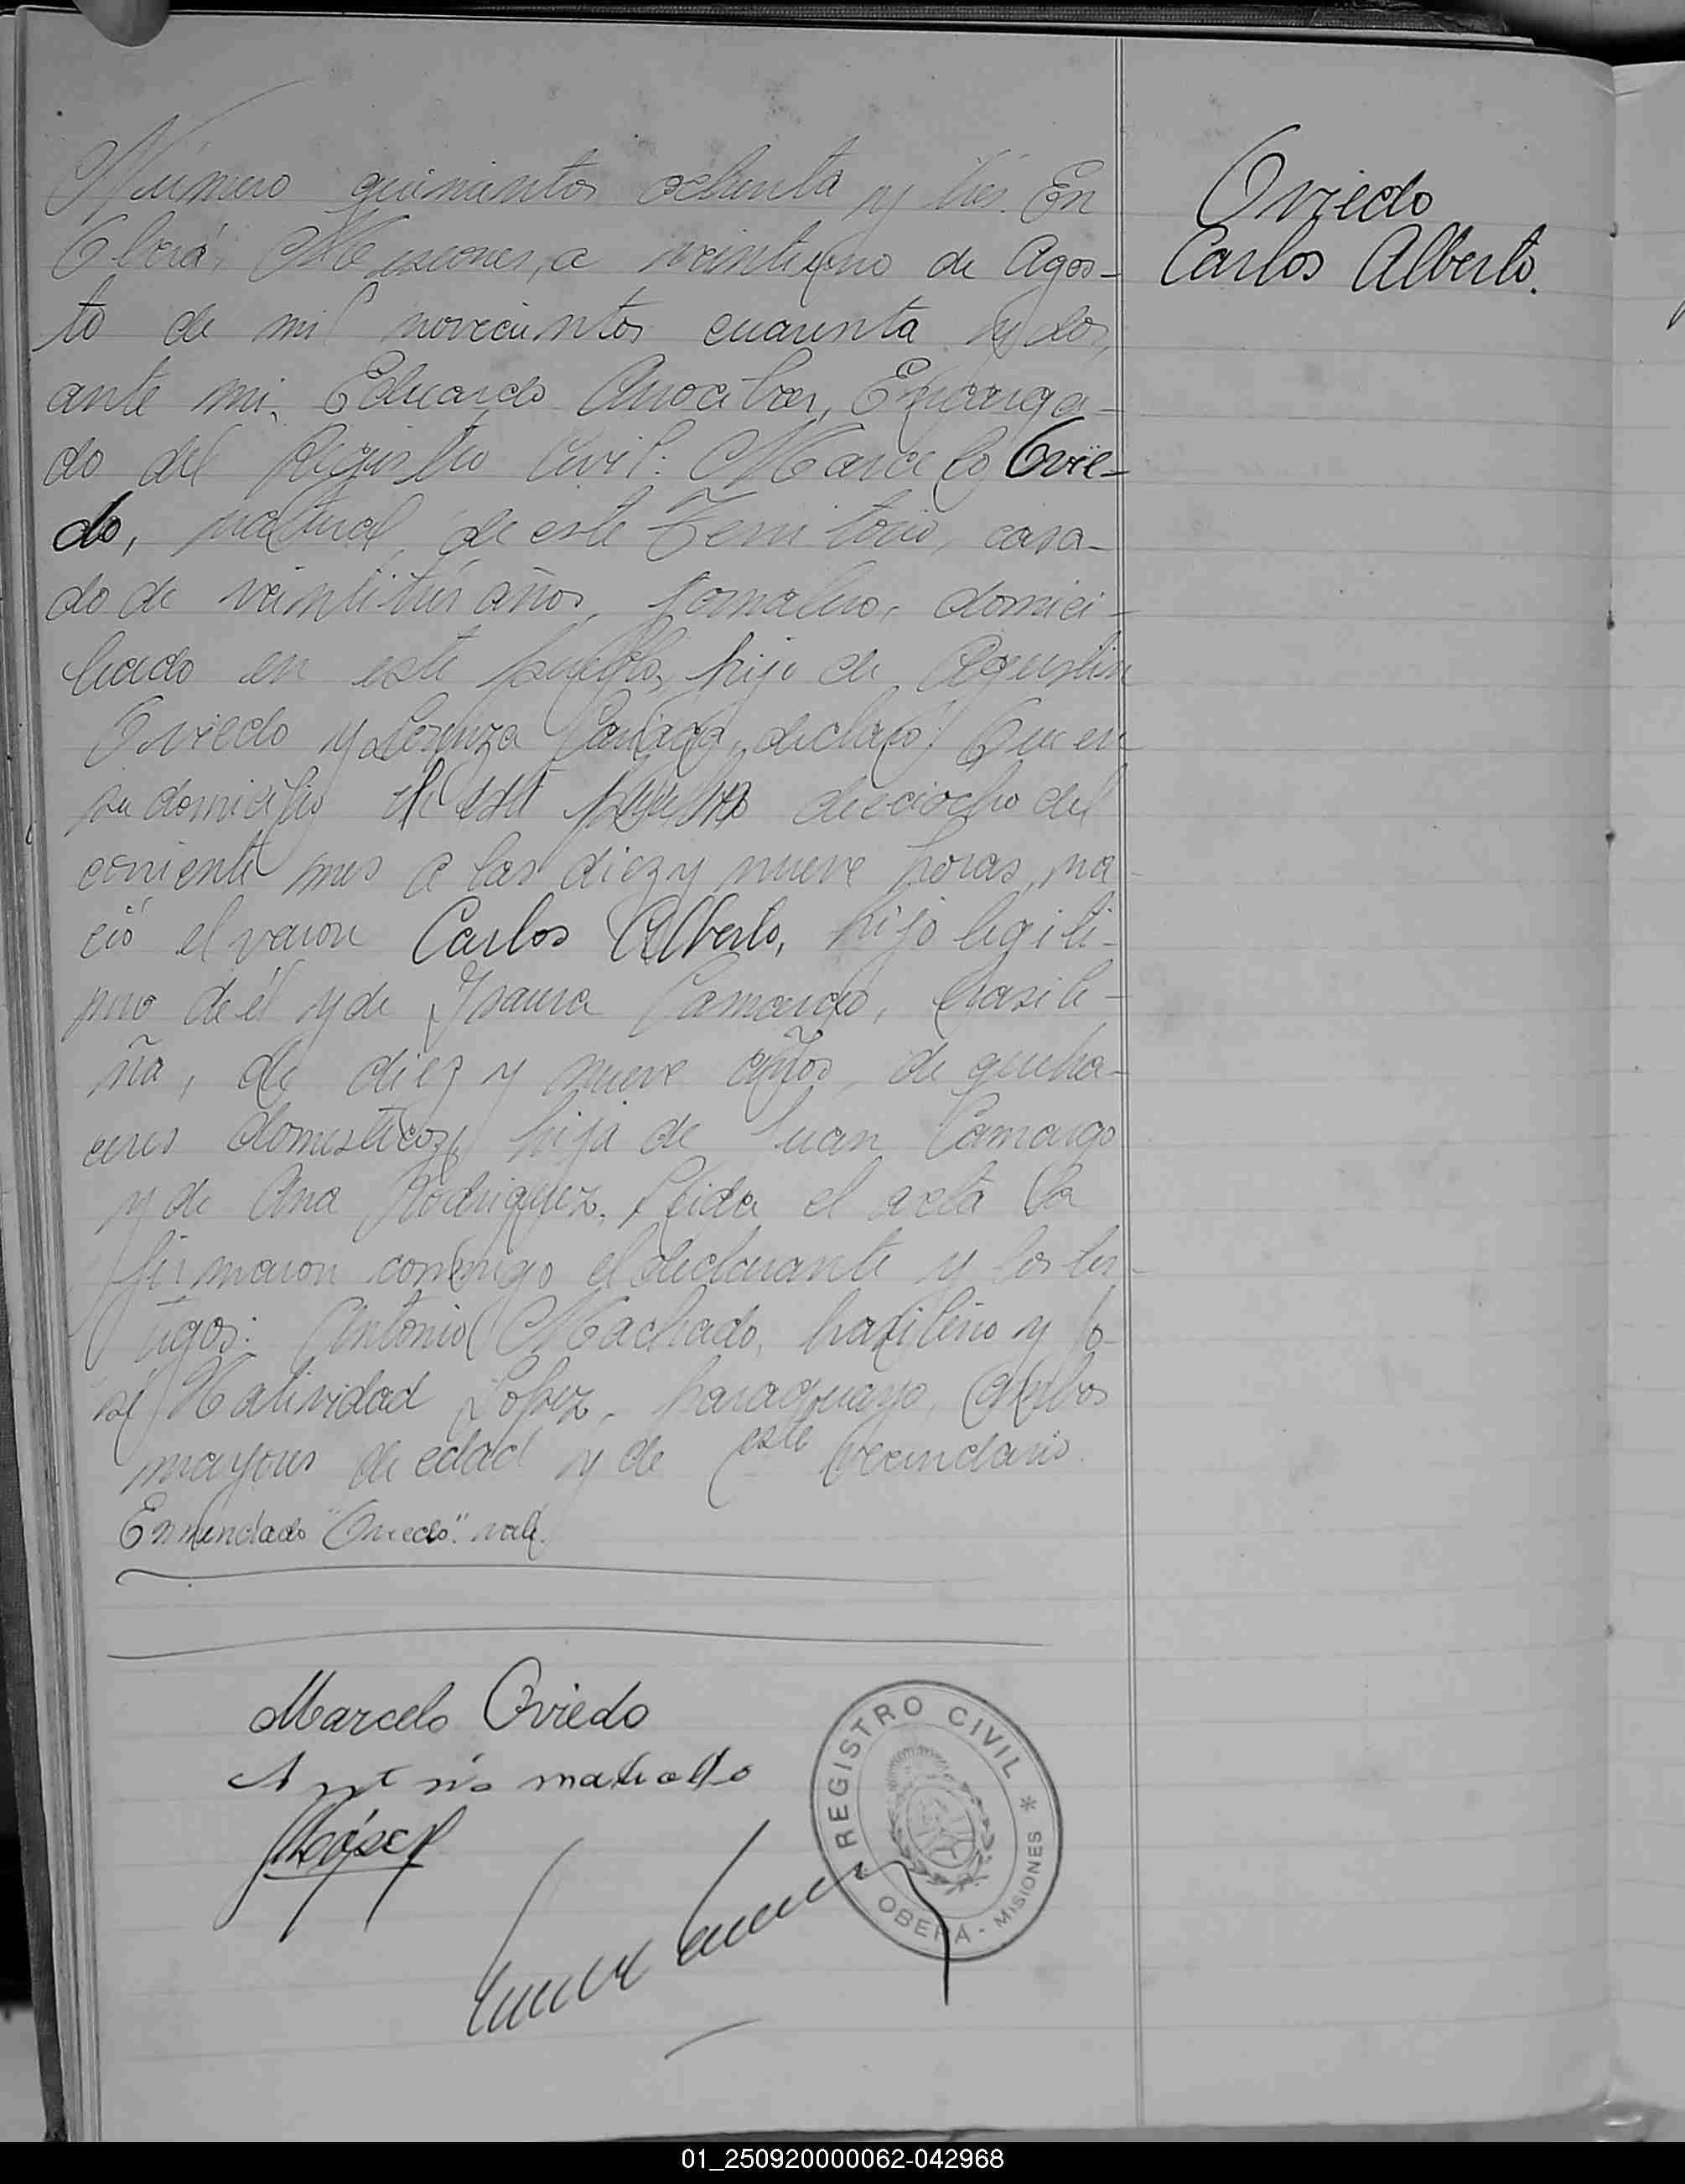 Número quinientos ochenta y tres. En
Oberá, Misiones, a veintiuno de Agos-
to de mil novecientos cuarenta y dos,
ante mi, Eduardo Encarga-
do del Registro Civil: Marcelo Ovie-
do, natural de este Territorio, casa-
do de veintitrés años, jornalero, domici-
liado en este pueblo, hijo de Agustin
Oviedo y Lorenza declaró: Que en
su domicilio de este pueblo dieciocho del
corriente mes a las diez y nueve horas, na-
ció el varon Carlos Alberto, hijo legiti-
mo de él y de Isaura Camargo, brasile-
ña, de diez y nueve años, de queha-
ceres domesticos, hija de Juan Camargo
y de Ana Rodriguez. Leida el acta la
firmaron conmigo el declarante y los tes-
tigos: Antonio Machado, brasileño y Jo-
sé Natividad Lopez, paraguayo, ambos
mayores de edad y de este vecindario.
Enmendado "Oviedo". vale.
Marcelo Oviedo
Antonio machado
REGISTRO CIVIL * OBERÁ - MISIONES
Oviedo
Carlos Alberto.
01_250920000062-042968